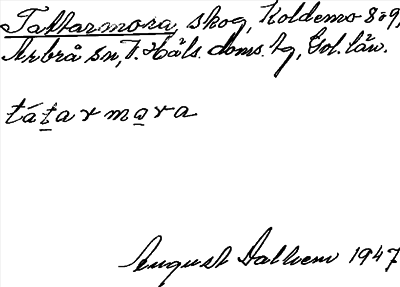 Tattarmora, skog, Koldemo 8 o 9,
Arbrå sn, V. Häls. doms. tg, Gvl. län.
tátarmora
August Dalhem 1947